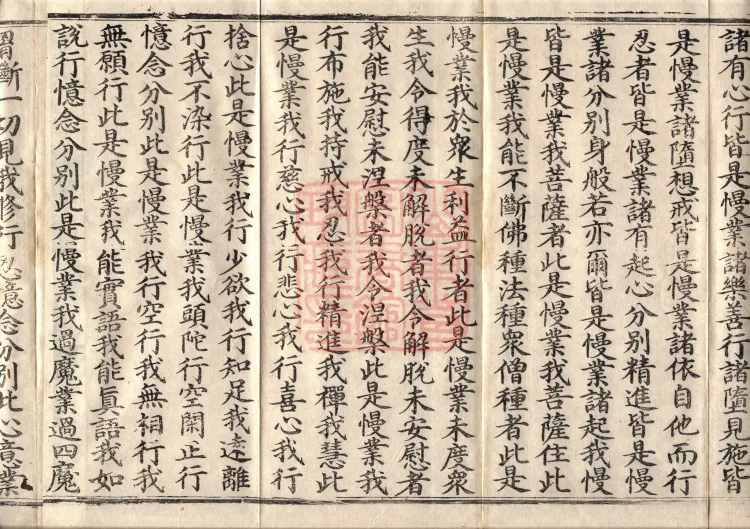 諸有心行皆是慢業諸樂善行諸墮見施皆
是慢業諸墮想戒皆是慢業諸依自他而行
忍者皆是慢業諸有起心分別精進皆是慢
業諸分別身般若亦爾皆是慢業諸起我慢
皆是慢業我菩薩者此是慢業我菩薩住此
是慢業我能不斷佛種法種衆僧種者此是
慢業我於衆生利益行者此是慢業未度衆
生我令得度未解脫者我令解脫未安慰者
我能安慰未涅槃者我令涅槃此是慢業我
行布施我持戒我忍我行精進我禪我慧此
是慢業我行慈心我行悲心我行喜心我行
捨心此是慢業我行少欲我行知足我遠離
行我不染行此是慢業我頭陀行空閑止行
憶念分別此是慢業我行空行我無相行我
無願行此是慢業我能實語我能真語我如
說行憶念分別此是慢業我過魔業過四魔
謂斷一切見我修行忍意念分別此心意業